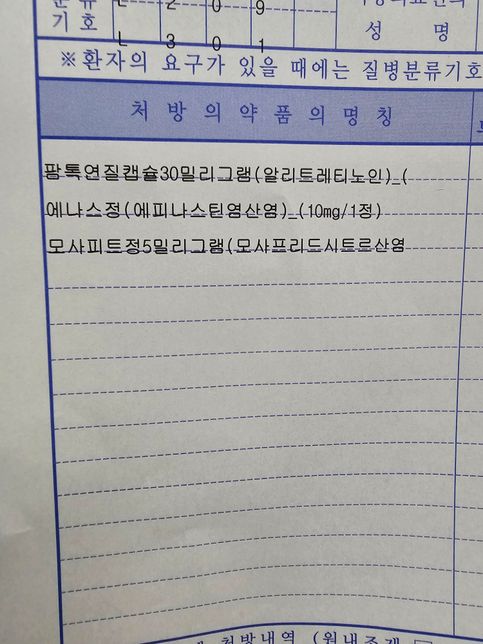 분류 L 2 0 9
기호 L 3 0 1
성 명
※환자의 요구가 있을 때에는 질병분류기호
처 방 의 약 품 의 명 칭
팜톡연질캡슐30밀리그램(알리트레티노인)_(
에나스정(에피나스틴염산염)_(10mg/1정)
모사피트정5밀리그램(모사프리드시트르산염
처방내역 (원내조제